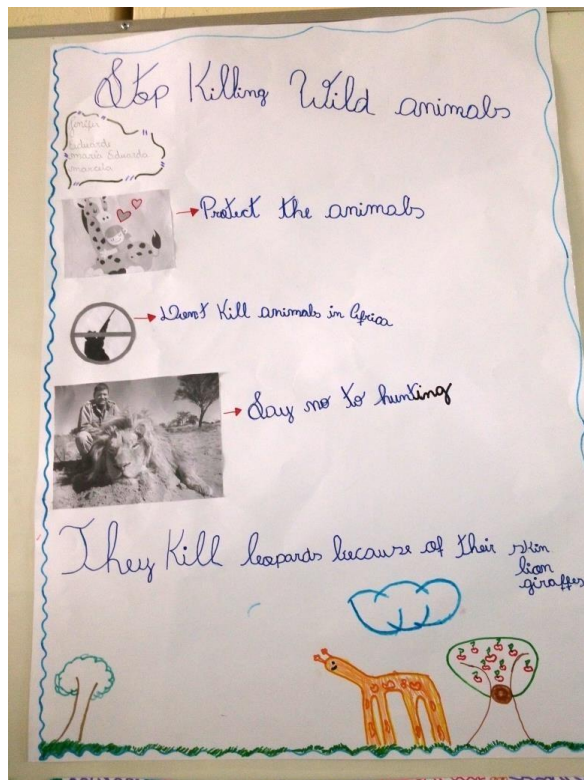 Stop Killing Wild animals
Eduarda
maria Eduarda
marcela
Protect the animals
Dont Kill animals in Africa
Say no to hunting
They Kill leopards because of their skin
lion
giraffes